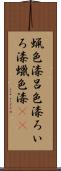 蝋色漆呂色漆ろい
ろ漆蠟色漆